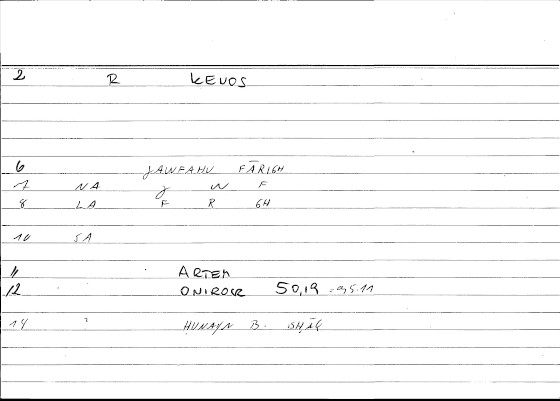 2 R KEVOS
6 JAWFAHU FĀRIGH
7 NA J W F
8 LA F R GH
10 SA
11 ARTEM
12 ONIROCR 50,19 = 95.11
14 ? HUNAYN B. ISHĀQ